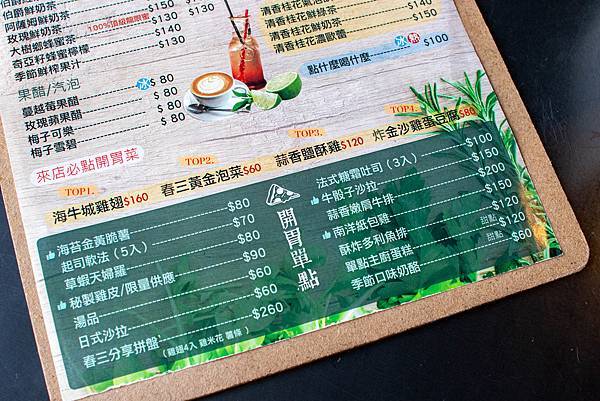 阿薩姆鮮奶茶 $150
玫瑰鮮奶茶 100%頂級龍眼蜜
大樹鄉蜂蜜茶 $130
奇亞籽蜂蜜檸檬 $140
季節鮮榨果汁 $130
果醋/汽泡 冰
蔓越莓果醋 $80
玫瑰蘋果醋 $80
梅子可樂 $80
梅子雪碧 $80
清香桂花鮮綠茶 $140
清香桂花鮮奶茶 $150
清香桂花濃歐蕾 $150
點什麼喝什麼 冰 熱 $100
來店必點開胃菜
TOP1.
海牛城雞翅$160
TOP2.
春三黃金泡菜$60
TOP3.
蒜香鹽酥雞$120
TOP4.
炸金沙雞蛋豆腐$80
海苔金黃脆薯 $80
起司軟法（5入） $70
草蝦天婦羅 $80
秘製雞皮/限量供應 $90
湯品 $60
日式沙拉 $60
春三分享拼盤 $260
（雞翅4入 雞米花 薯條）
開胃單點
法式糖霜吐司（3入） $100
牛骰子沙拉 $150
蒜香嫩肩牛排 $200
南洋紙包雞 $150
酥炸多利魚排 $120
單點主廚蛋糕 甜點 $120
季節口味奶酪 甜點 $60